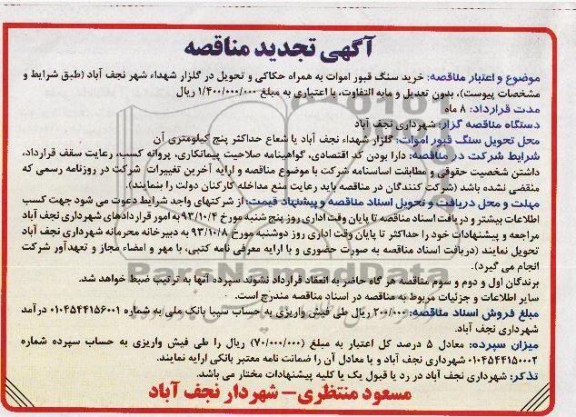 آگهی تجدید مناقصه
موضوع و اعتبار مناقصه: خرید سنگ قبور اموات به همراه حکاکی و تحویل در گلزار شهداء شهر نجف آباد (طبق شرایط و
مشخصات پیوست)، بدون تعدیل و مابه التفاوت، با اعتباری به مبلغ ۱/۴۰۰/۰۰۰/۰۰۰ ریال
مدت قرارداد: ۸ ماه
دستگاه مناقصه گزار: شهرداری نجف آباد
محل تحویل سنگ قبور اموات: گلزار شهداء نجف آباد یا شعاع حداکثر پنج کیلومتری آن
شرایط شرکت در مناقصه: دارا بودن کد اقتصادی، گواهینامه صلاحیت پیمانکاری، پروانه کسب، رعایت سقف قرارداد،
داشتن شخصیت حقوقی و مطابقت اساسنامه شرکت با موضوع مناقصه و ارایه آخرین تغییرات شرکت در روزنامه رسمی که
منقضی نشده باشد (شرکت کنندگان در مناقصه باید رعایت منع مداخله کارکنان دولت را بنمایند).
مهلت و محل دریافت و تحویل اسناد مناقصه و پیشنهاد قیمت: از شرکتهای واجد شرایط دعوت می شود جهت کسب
اطلاعات بیشتر و دریافت اسناد مناقصه تا پایان وقت اداری روز پنج شنبه مورخ ۹۳/۱۰/۴ به امور قراردادهای شهرداری نجف آباد
مراجعه و پیشنهادات خود را حداکثر تا پایان وقت اداری روز دوشنبه مورخ ۹۳/۱۰/۸ به دبیرخانه محرمانه شهرداری نجف آباد
تحویل نمایند (دریافت اسناد مناقصه به صورت حضوری و با ارایه معرفی نامه کتبی، با مهر و امضاء مجاز و تعهدآور شرکت
انجام می گیرد).
برندگان اول و دوم و سوم مناقصه هر گاه حاضر به انعقاد قرارداد نشوند سپرده آنها به ترتیب ضبط خواهد شد.
سایر اطلاعات و جزئیات مربوط به مناقصه در اسناد مناقصه مندرج است.
مبلغ فروش اسناد مناقصه: ۲۰۰/۰۰۰ ریال طی فیش واریزی به حساب سیبا بانک ملی به شماره ۰۱۰۴۵۴۴۱۵۶۰۰۱ درآمد
شهرداری نجف آباد.
میزان سپرده: معادل ۵ درصد کل اعتبار به مبلغ (۷۰/۰۰۰/۰۰۰) ریال را طی فیش واریزی به حساب سپرده شماره
۰۱۰۴۵۴۴۱۵۰۰۰۲ شهرداری نجف آباد و یا معادل آن را ضمانت نامه معتبر بانکی ارایه نمایند.
تذکر: شهرداری نجف آباد در رد یا قبول یک یا کلیه پیشنهادات مختار می باشد.
مسعود منتظری - شهردار نجف آباد
ParsNamadData